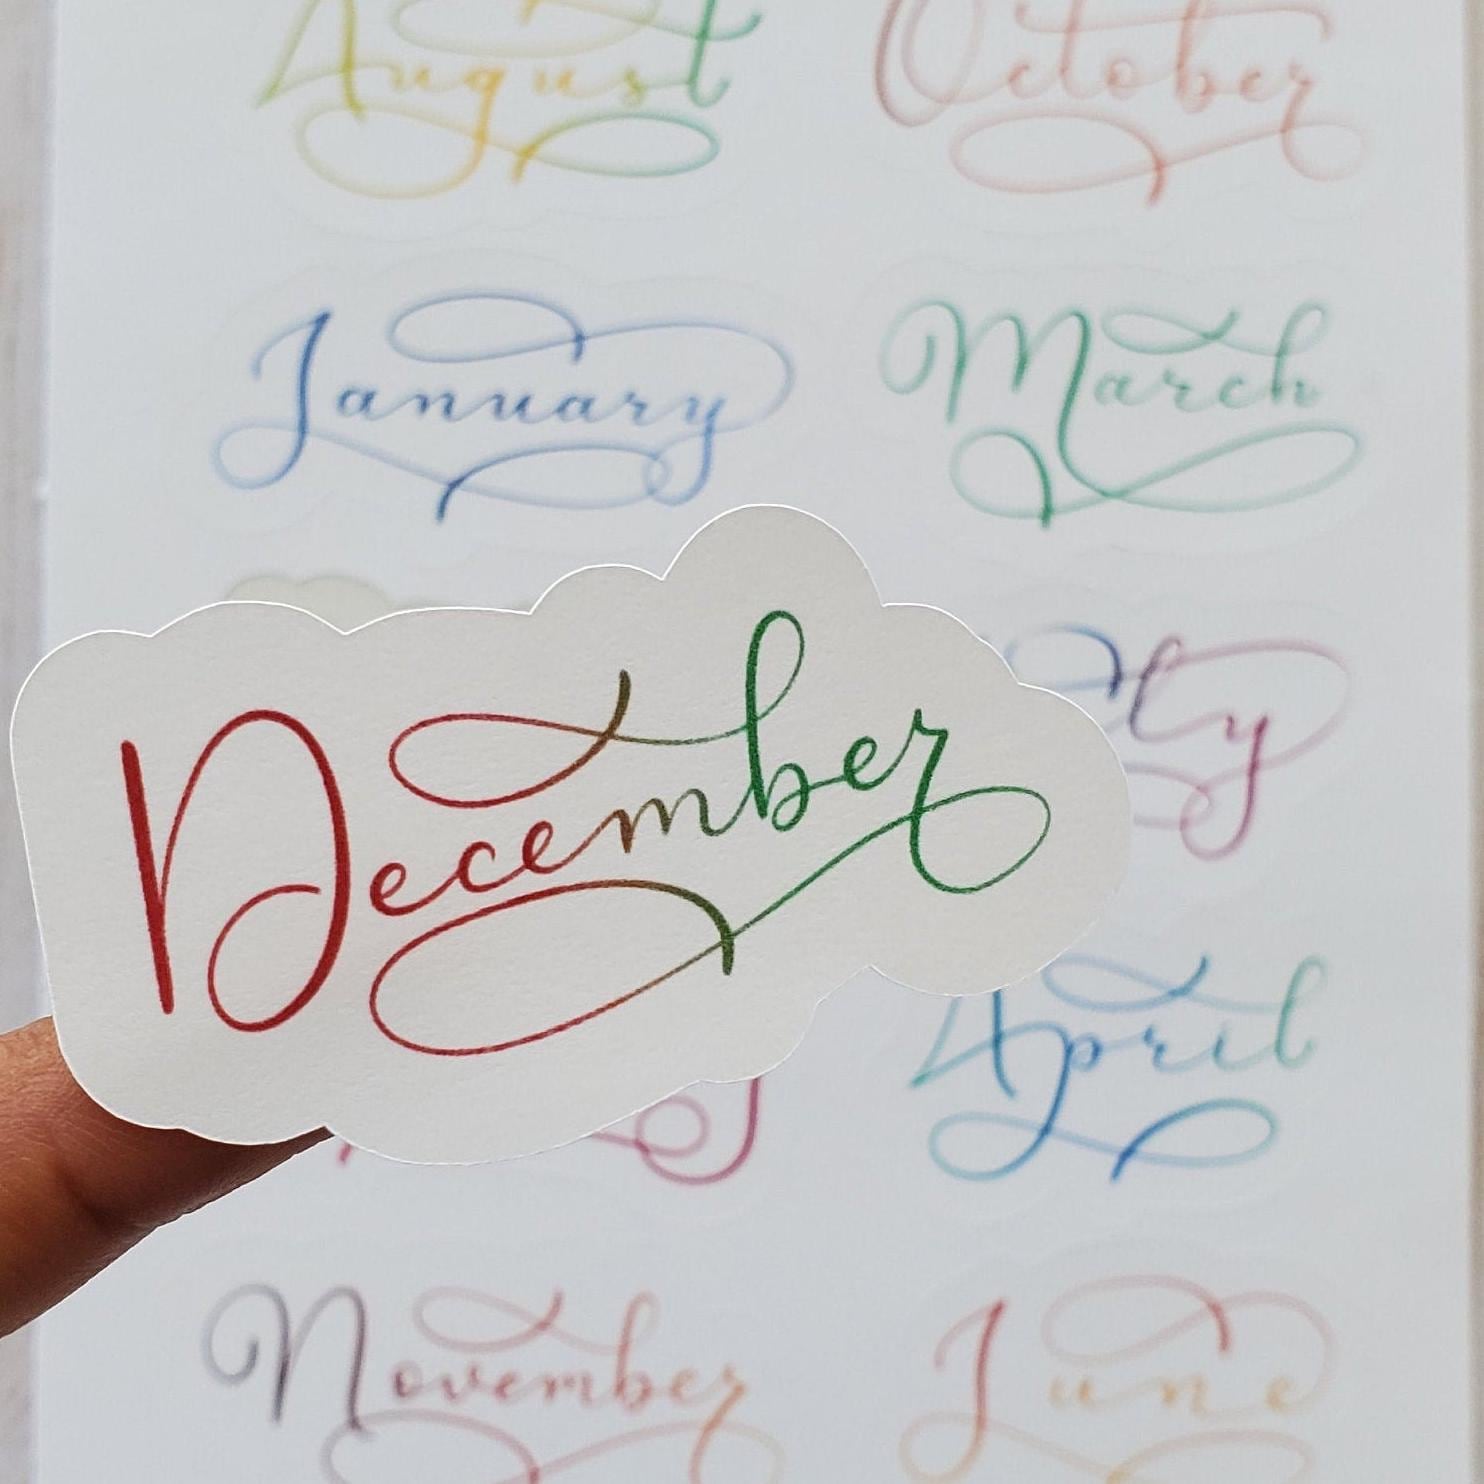 August October
January March
December
April
November June